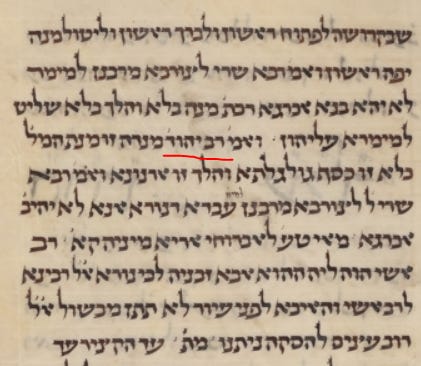 שבקדושה לפתוח ראשון ולברך ראשון וליטול מנה
יפה ראשון ואמ' רבא שרי ליצורבא מרבנן למימר
לא יהא בנא אכרגא דכת' מנה בלא והלך בלא שליט
למימרא עליהון ואמ' רב יהוד' מנדה זו מנת המל'
בלא זו כסף גולגלתא והלך זו ארנונא ואמ' רבא
שרי ל' ליצורבא מרבנן עבדא דנורא אנא לא יהיב'
אכרגא מאי טע' לאברוחי אריא מיניה קא' רב
אשי הוה ליה ההוא אבא זבניה לבי נורא א'ל רבינא
לרב אשי והאיכא לפני עיור לא תתן מכשול א'ל
רוב עצים להסקה ניתנו מת' עד הקציר עד